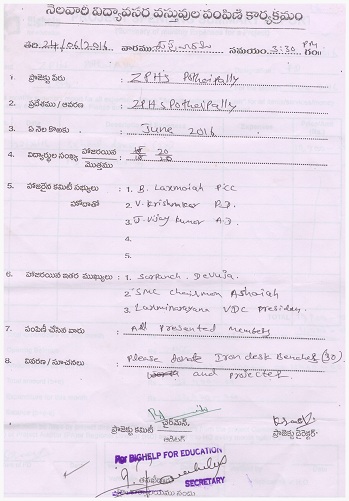 నెలవారీ విద్యావసర వస్తువుల పంపిణీ కార్యక్రమం
తేది: 24/06/2016 వారము: సమయం: 3:30 PM గం॥
1. ప్రాజెక్టు పేరు : ZPHS Potheipally
2. ప్రదేశము / ఆవరణ : ZPHS Potheipally
3. ఏ నెల కొఱకు : June 2016
4. విద్యార్థుల సంఖ్య హాజరయిన 20
మొత్తము
5. హాజరైన కమిటీ సభ్యులు : 1. B. Laxmaiah PCC
హోదాతో 2. V. Krishnakar P.D.
3. J. Vijay Kumar A.D.
4.
5.
6. హాజరయిన ఇతర ముఖ్యులు : 1. Sarpanch. Devuja.
2. SMC Chairman Ashaiah
3. Laxminarayana VDC President
7. పంపిణీ చేసిన వారు : All Presented members
8. వివరణ / సూచనలు : Please donate Iron desk Benches (30)
and projector
ప్రాజెక్టు కమిటీ చైర్మన్, ప్రాజెక్టు డైరెక్టర్
ఆడిటర్
For BIGHELP FOR EDUCATION
SECRETARY